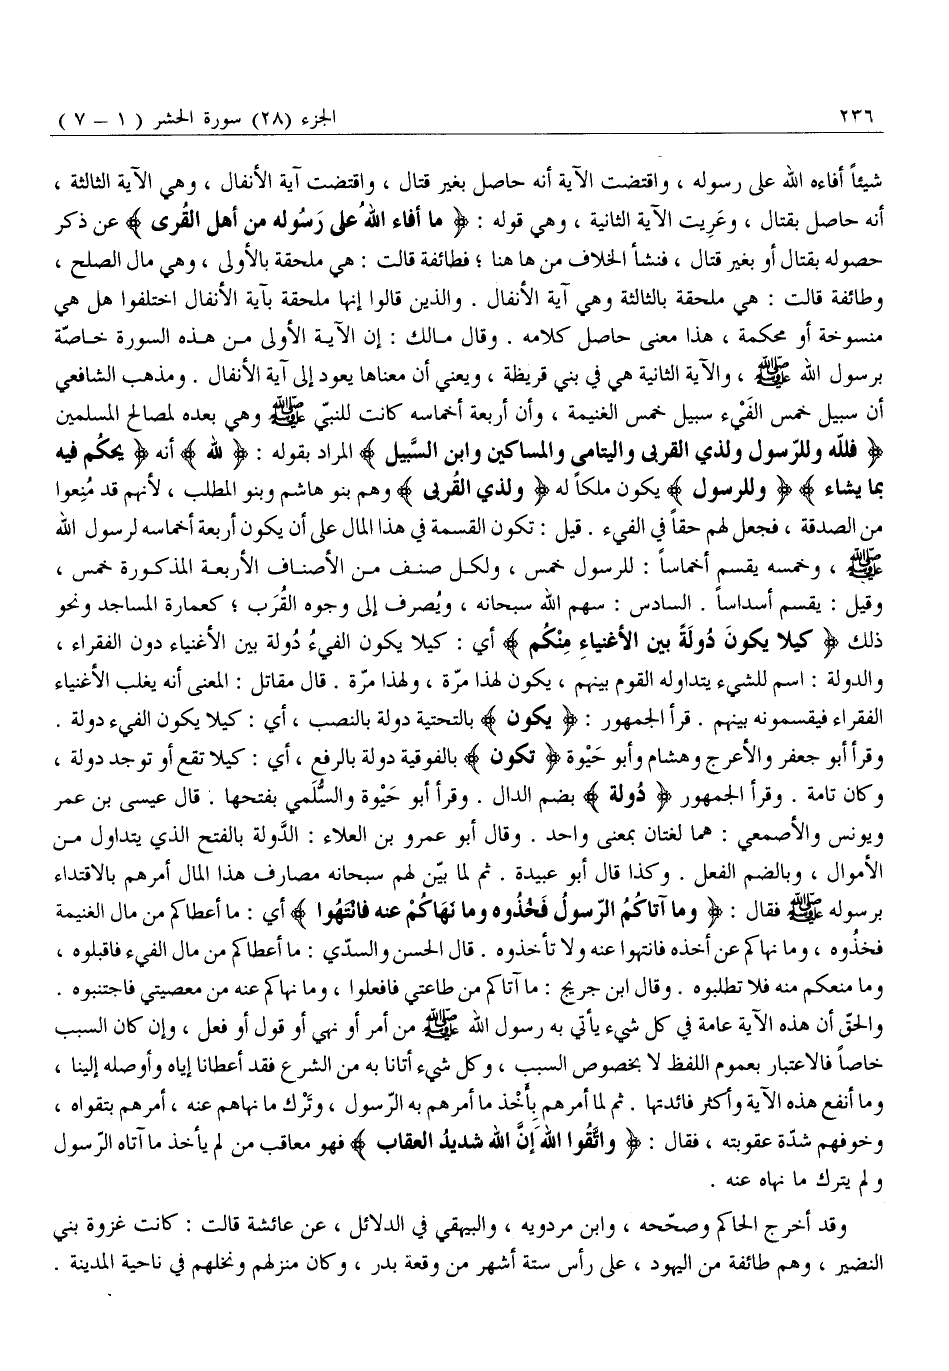 ٢٣٦ الجزء (٢٨) سورة الحشر ( ١ – ٧ )
شيئاً أفاءه الله على رسوله ، واقتضت الآية أنه حاصل بغير قتال ، واقتضت آية الأنفال ، وهي الآية الثالثة ،
أنه حاصل بقتال ، وعَرِيت الآية الثانية ، وهي قوله : ﴿ ما أفاء اللهُ على رَسُوله من أهل القُرى ﴾ عن ذكر
حصوله بقتال أو بغير قتال ، فنشأ الخلاف من ها هنا ؛ فطائفة قالت : هي ملحقة بالأولى ، وهي مال الصلح ،
وطائفة قالت : هي ملحقة بالثالثة وهي آية الأنفال . والذين قالوا إنها ملحقة بآية الأنفال اختلفوا هل هي
منسوخة أو محكمة ، هذا معنى حاصل كلامه . وقال مالك : إن الآية الأولى من هذه السورة خاصّة
برسول الله ﷺ ، والآية الثانية هي في بني قريظة ، ويعني أن معناها يعود إلى آية الأنفال . ومذهب الشافعي
أن سبيل خمس الفَيْء سبيل خمس الغنيمة ، وأن أربعة أخماسه كانت للنبيّ ﷺ وهي بعده لمصالح المسلمين
﴿ فللّه وللرّسول ولذي القربى واليتامى والمساكين وابن السَّبيل ﴾ المراد بقوله : ﴿ لله ﴾ أنه ﴿ يحكُم فيه
بما يشاء ﴾ ﴿ وللرسول ﴾ يكون ملكاً له ﴿ ولذي القُربى ﴾ وهم بنو هاشم وبنو المطلب ، لأنهم قد مُنِعوا
من الصدقة ، فجعل لهم حقاً في الفيء . قيل : تكون القسمة في هذا المال على أن يكون أربعة أخماسه لرسول الله
ﷺ ، وخمسه يقسم أخماساً : للرسول خمس ، ولكل صنف من الأصناف الأربعة المذكورة خمس ،
وقيل : يقسم أسداساً . السادس : سهم الله سبحانه ، ويُصرف إلى وجوه القُرَب ؛ كعمارة المساجد ونحو
ذلك ﴿ كيلا يكونَ دُولَةً بين الأغنياءِ مِنْكُم ﴾ أي : كيلا يكون الفيءُ دُولة بين الأغنياء دون الفقراء ،
والدولة : اسم للشيء يتداوله القوم بينهم ، يكون لهذا مرّة ، ولهذا مرّة . قال مقاتل : المعنى أنه يغلب الأغنياء
الفقراء فيقسمونه بينهم . قرأ الجمهور : ﴿ يكون ﴾ بالتحتية دولة بالنصب ، أي : كيلا يكون الفيء دولة .
وقرأ أبو جعفر والأعرج وهشام وأبو حَيْوة ﴿ تكون ﴾ بالفوقية دولة بالرفع ، أي : كيلا تقع أو توجد دولة ،
وكان تامة . وقرأ الجمهور ﴿ دُولة ﴾ بضم الدال . وقرأ أبو حَيْوة والسُّلمي بفتحها . قال عيسى بن عمر
ويونس والأصمعي : هما لغتان بمعنى واحد . وقال أبو عمرو بن العلاء : الدَّولة بالفتح الذي يتداول من
الأموال ، وبالضم الفعل . وكذا قال أبو عبيدة . ثم لما بيّن لهم سبحانه مصارف هذا المال أمرهم بالاقتداء
برسوله ﷺ فقال : ﴿ وما آتاكُمُ الرّسولُ فَخُذُوه وما نَهَاكُمْ عنه فانْتَهُوا ﴾ أي : ما أعطاكم من مال الغنيمة
فخذُوه ، وما نهاكم عن أخذه فانتهوا عنه ولا تأخذوه . قال الحسن والسدّي : ما أعطاكم من مال الفيء فاقبلوه ،
وما منعكم منه فلا تطلبوه . وقال ابن جريج : ما آتاكم من طاعتي فافعلوا ، وما نهاكم عنه من معصيتي فاجتنبوه .
والحقّ أن هذه الآية عامة في كل شيء يأتي به رسول الله ﷺ من أمر أو نهي أو قول أو فعل ، وإن كان السبب
خاصاً فالاعتبار بعموم اللفظ لا بخصوص السبب ، وكل شيء أتانا به من الشرع فقد أعطانا إياه وأوصله إلينا ،
وما أنفع هذه الآية وأكثر فائدتها . ثم لما أمرهم بِأَخْذ ما أمرهم به الرّسول ، وتَرْك ما نهاهم عنه ، أمرهم بتقواه ،
وخوفهم شدّة عقوبته ، فقال : ﴿ واتَّقُوا اللهَ إنَّ الله شديدُ العقاب ﴾ فهو معاقب من لم يأخذ ما آتاه الرّسول
ولم يترك ما نهاه عنه .
وقد أخرج الحاكم وصحّحه ، وابن مردويه ، والبيهقي في الدلائل ، عن عائشة قالت : كانت غزوة بني
النضير ، وهم طائفة من اليهود ، على رأس ستة أشهر من وقعة بدر ، وكان منزلهم ونخلهم في ناحية المدينة .